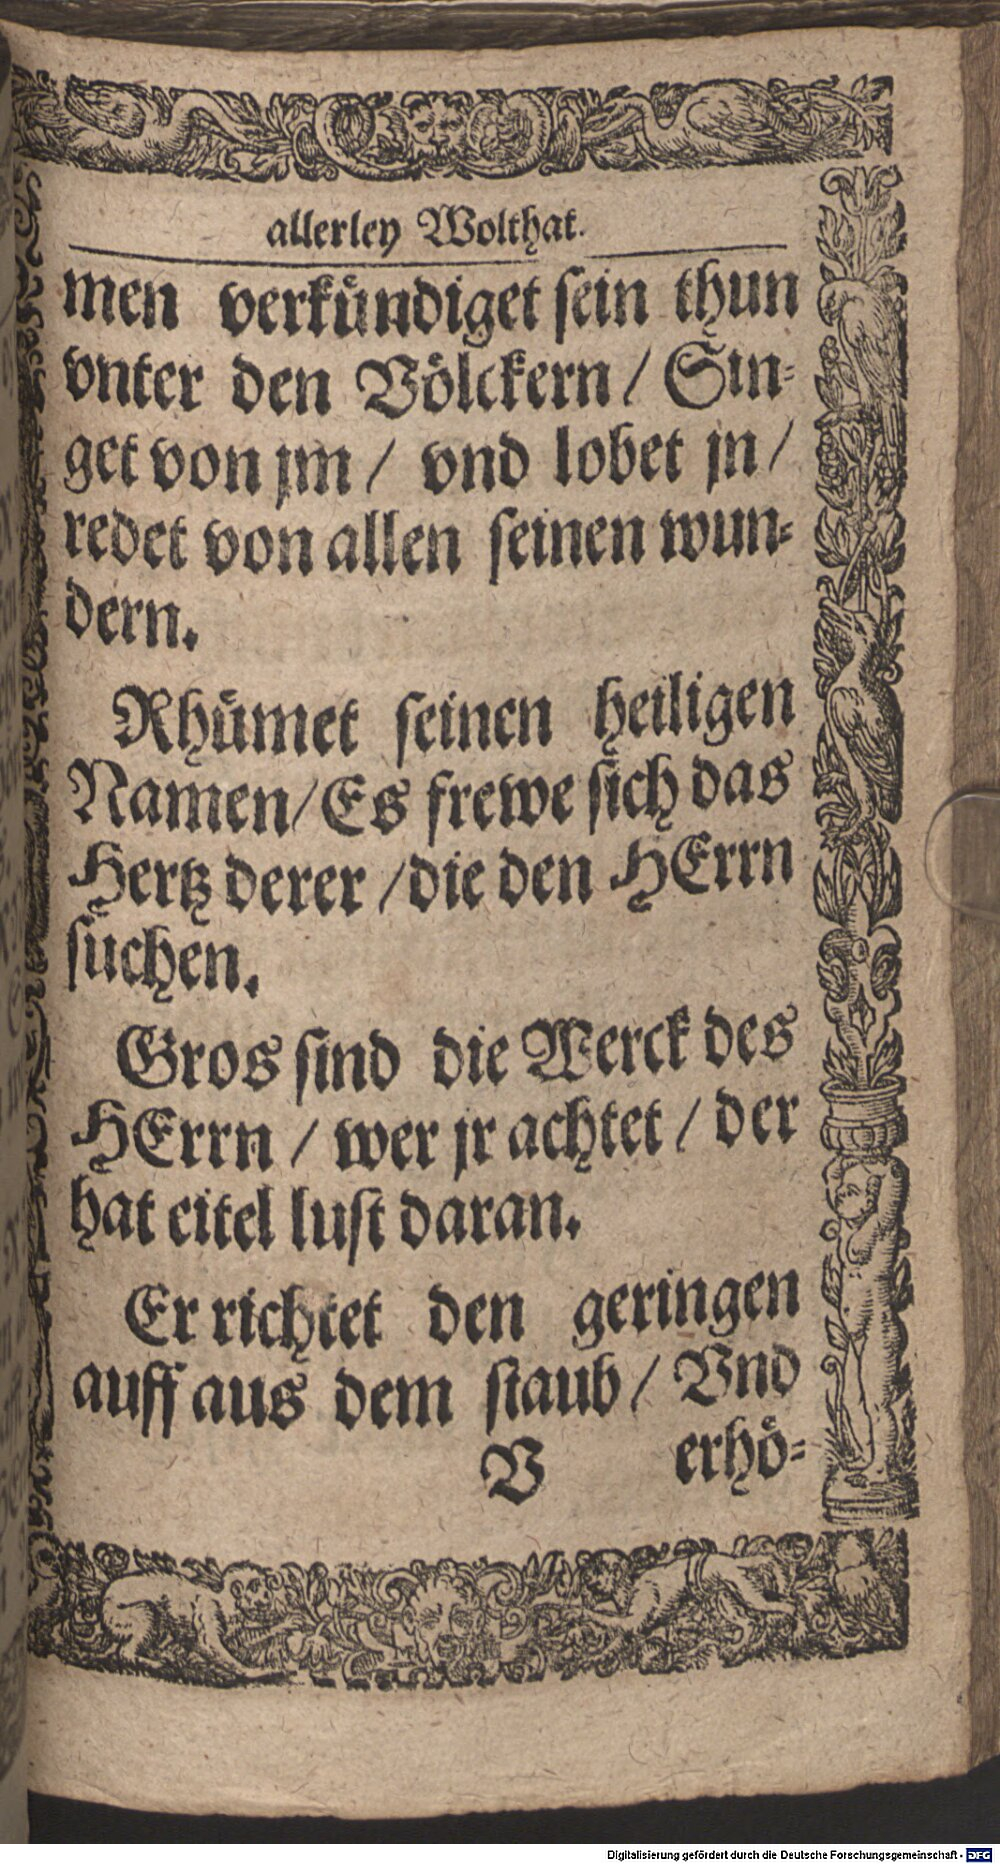 allerley Wolthat.
men verkündiget sein thun
vnter den Völckern / Sin-
get von jm / vnd lobet jn /
redet von allen seinen wun-
dern.
Rhümet seinen heiligen
Namen / Es frewe sich das
Hertz derer / die den HErrn
suchen.
Gros sind die Werck des
HErrn / wer jr achtet / der
hat eitel lust daran.
Er richtet den geringen
auff aus dem staub / Vnd
V erhö-
Digitalisierung gefördert durch die Deutsche Forschungsgemeinschaft - DFG